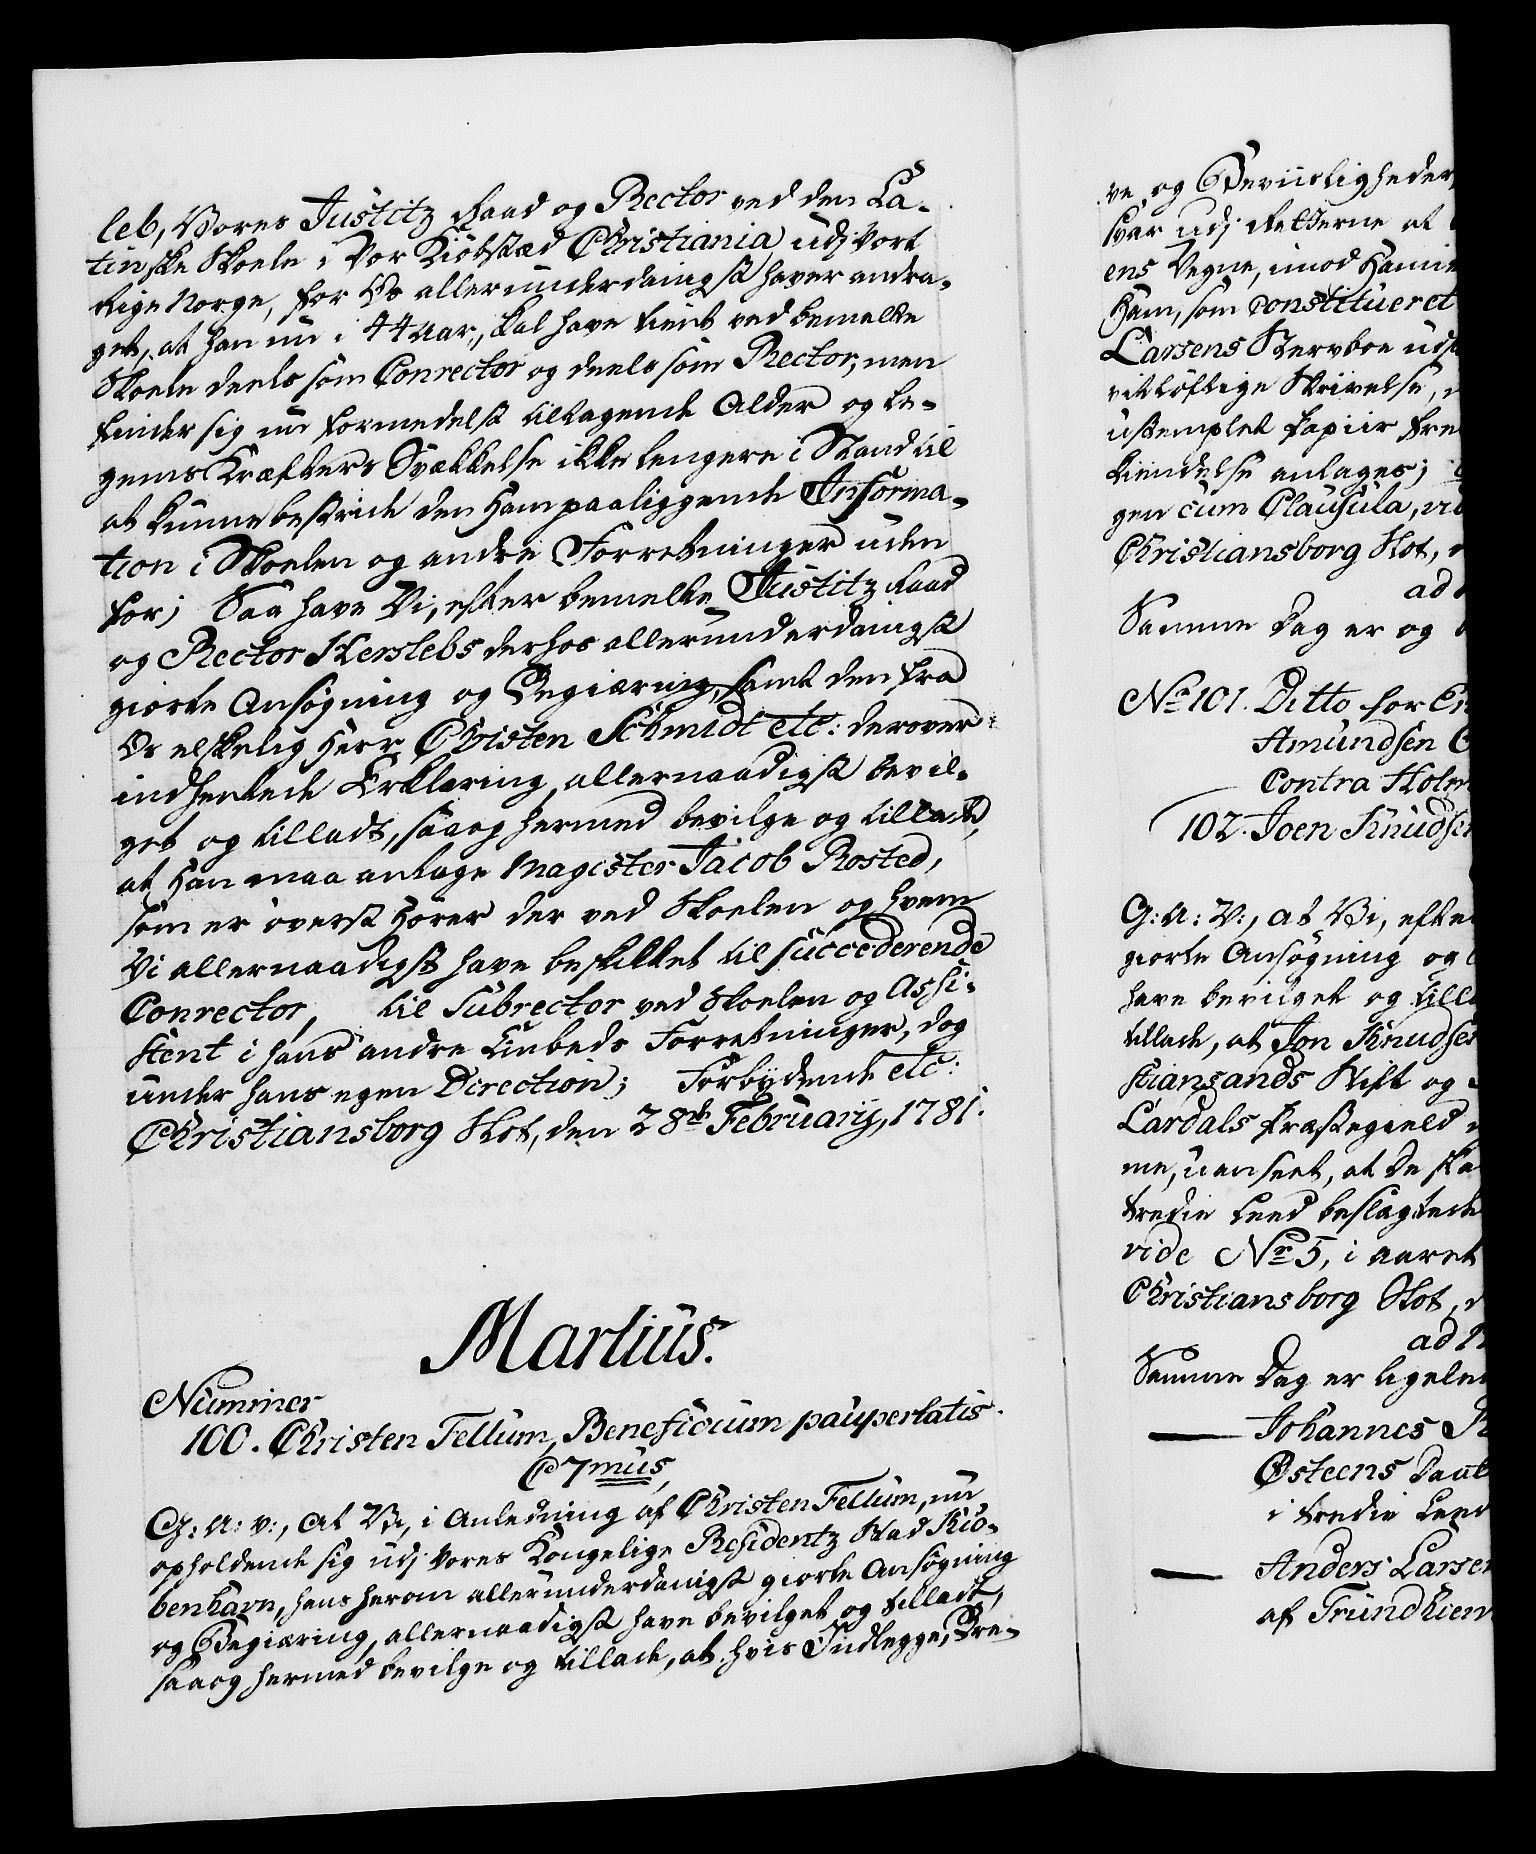 leb, Vores Justitz Raad og Rector ved den La-
tinske Skoele i Vor Kiöbstæd Christiania udj Vort
Rige Norge, for Os allerunderdanigst haver andra-
get, at han nu i 44 Aar, skal have tient ved bemelte
Skoele deels som Conrector og deels som Rector, men
finder sig nu formedelst tiltagende Alder og Le-
gems Kræfters Svækkelse ikke lengere i Stand til
at kunne bestride den Ham paaliggende Informa-
tion i Skoelen og andre Forretninger uden
for; Saa have Vi, efter bemelte Justitz Raad
og Rector Herslebs derhos allerunderdanigst
giorte Ansögning og Begiæring, samt den fra
Os elskelig Herr Christen Schmidt etc: derover
indhentede Erklæring, allernaadigst bevil-
get og tilladt, saa og hermed bevilge og tillade,
at Han maa antage Magister Jacob Rosted,
som er överst Hörer der ved Skoelen og hvem
Vi allernaadigst have beskikket til succederende
Conrector, til Subrector ved Skoelen og Assi-
stent i hans andre Embeds Forretninger, dog
under hans egen Direction; Forbydende etc:
Christiansborg Slot, den 28de Februarij, 1781.
Martius.
Nummer
100. Christen Tellum, Beneficium paupertatis.
C 7mus,
G: A: V:, At Vi, i Anledning af Christen Tellum, nu
opholdende sig udj Vores Kongelige Residentz Stad Kiö-
benhavn, hans herom allerunderdanigst giorte Ansögning
og Begiæring, allernaadigst have bevilget og tilladt,
saa og hermed bevilge og tillade, at hvis Indlegge, Bre-
ve og Beviisligheder,
svar udj Retterne at
ens Vegne, imod
Ham, som Constitueret
Larsens Stervboe
vitlöftige Skrivelse,
ustemplet Papiir
Kiendelse antages;
gen cum Clausula,
Christiansborg Slot,
ad
Samme Dag er og
No 101. Ditto for
Amundsen
Contra
102. Joen Knudsen
G: A: V:, At Vi, efter
giorte Ansögning og
have bevilget og
tillade, at Jon Knudsen
stiansands Stift og
Lardals Præstegield
me, uanseet, at De
tredie Leed beslægtede
vide No 5, i Aaret
Christiansborg Slot,
ad
Samme Dag er
Johannes
Östeens
i tredie Leed
Anders Larsen
af Trundhiem